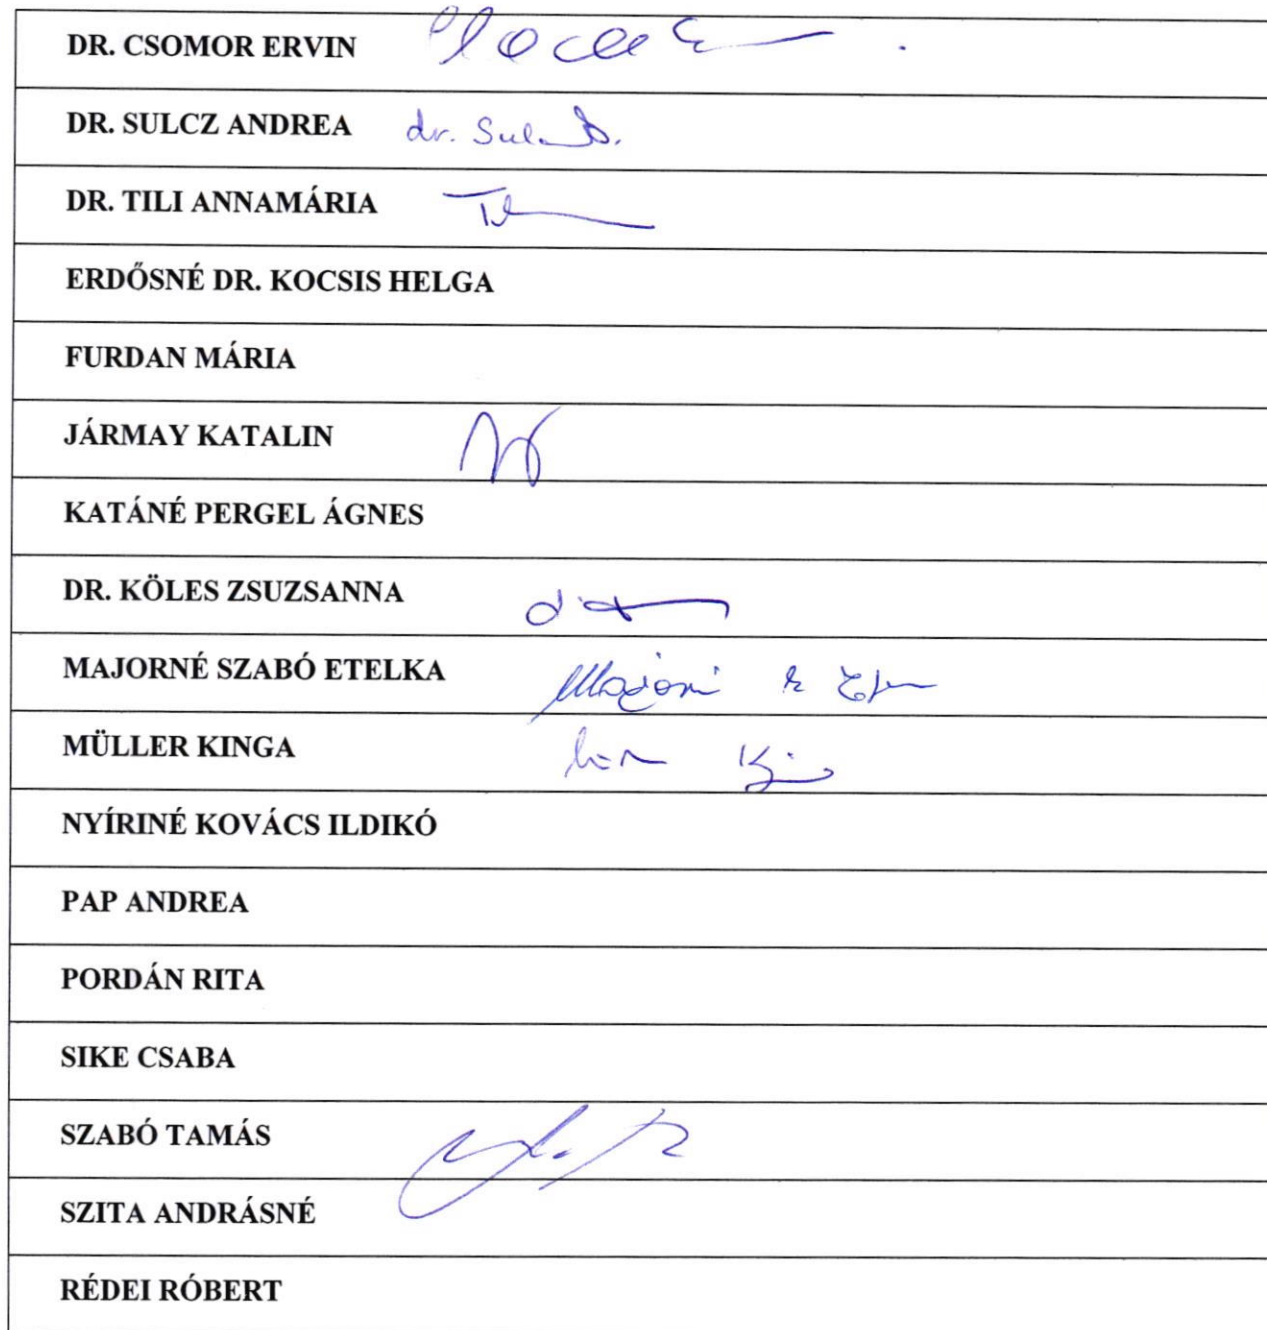 DR. CSOMOR ERVIN
DR. SULCZ ANDREA dr.
DR. TILI ANNAMÁRIA
ERDŐSNÉ DR. KOCSIS HELGA
FURDAN MÁRIA
JÁRMAY KATALIN
KATÁNÉ PERGEL ÁGNES
DR. KÖLES ZSUZSANNA
MAJORNÉ SZABÓ ETELKA
MÜLLER KINGA
NYÍRINÉ KOVÁCS ILDIKÓ
PAP ANDREA
PORDÁN RITA
SIKE CSABA
SZABÓ TAMÁS
SZITA ANDRÁSNÉ
RÉDEI RÓBERT